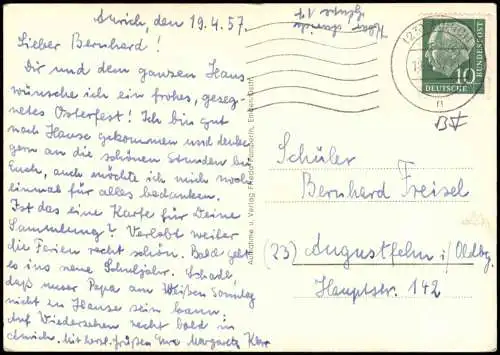 Aurich, den 19.4.57.
Lieber Bernhard!
Dir und dem ganzen Haus
wünsche ich ein frohes, geseg-
netes Osterfest! Ich bin gut
nach Hause gekommen und denke
gern an die schönen Stunden bei
Euch, auch möchte ich mich noch
einmal für alles bedanken.
Ist das eine Karte für Deine
Sammlung? Verlebt weiter
die Ferien recht schön. Bald geht
es ins neue Schuljahr. Schade,
daß unser Papa am Weißen Sonntag
nicht zu Hause sein kann.
Auf Wiedersehen recht bald in
Aurich. Mit herzl. Grüßen Eure Margarete
DEUTSCHE
BUNDESPOST
10
Schüler
Bernhard Freisel
(23) Augustfehn i/Oldbg.
Hauptstr. 142